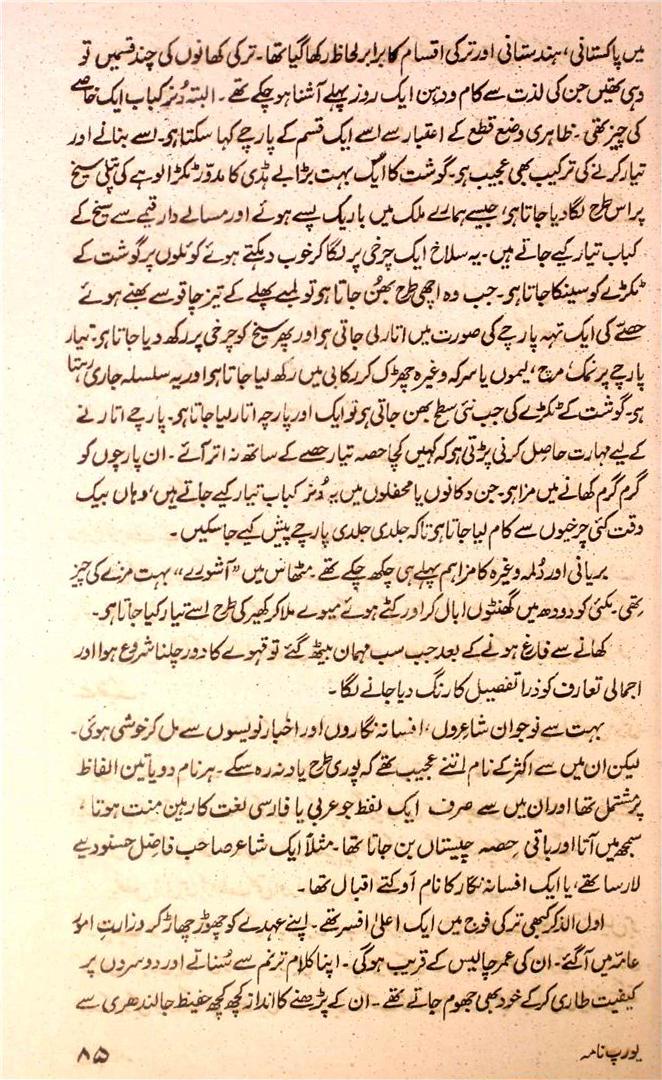 میں پاکستانی، ہندستانی اور ترکی اقسام کا برابر لحاظ رکھا گیا تھا۔ ترکی کھانوں کی چند قسمیں تو
وہی تھیں جن کی لذت سے کام و دہن ایک روز پہلے آشنا ہو چکے تھے۔ البتہ دُنر کباب ایک خاصے
کی چیز تھی۔ ظاہری وضع قطع کے اعتبار سے اسے ایک قسم کے پارچے کہا سکتا ہو۔ اسے بنانے اور
تیار کرنے کی ترکیب بھی عجیب ہو۔ گوشت کا ایک بہت بڑا بے ہڈی کا مدوّر ٹکڑا لوہے کی پتلی سیخ
پر اس طرح لگا دیا جاتا ہو، جیسے ہمارے ملک میں باریک پسے ہوئے اور مسالے دار قیمے سے سیخ کے
کباب تیار کیے جاتے ہیں۔ یہ سلاخ ایک چرخی پر لگا کر خوب دہکتے ہوئے کوئلوں پر گوشت کے
ٹکڑے کو سینکا جاتا ہو۔ جب وہ اچھی طرح بھُن جاتا ہو تو لمبے پھلے کے تیز چاقو سے بھنے ہوئے
حصّے کی ایک تہہ پارچے کی صورت میں اتار لی جاتی ہو اور پھر سیخ کو چرخی پر رکھ دیا جاتا ہو۔ تیار
پارچے پر نمک مرچ، لیموں یا سرکہ وغیرہ چھڑک کر رکابی میں رکھ لیا جاتا ہو اور یہ سلسلہ جاری رہتا
ہو۔ گوشت کے ٹکڑے کی جب نئی سطح بھن جاتی ہو تو ایک اور پارچہ اتار لیا جاتا ہو۔ پارچے اتارنے
کے لیے مہارت حاصل کرنی پڑتی ہو کہ کہیں کچا حصہ تیار حصے کے ساتھ نہ اتر آئے۔ ان پارچوں کو
گرم گرم کھانے میں مزا ہو۔ جن دکانوں یا محفلوں میں یہ دُنر کباب تیار کیے جاتے ہیں، وہاں بیک
وقت کئی چرخیوں سے کام لیا جاتا ہو تاکہ جلدی جلدی پارچے پیش کیے جا سکیں۔
بریانی اور دُلمہ وغیرہ کا مزا ہم پہلے ہی چکھ چکے تھے۔ مٹھاس میں ”آشورے“ بہت مزے کی چیز
تھی۔ مکئی کو دودھ میں گھنٹوں ابال کر اور کٹے ہوئے میوے ملا کر کھیر کی طرح اسے تیار کیا جاتا ہو۔
کھانے سے فارغ ہونے کے بعد جب سب مہمان بیٹھ گئے تو قہوے کا دور چلنا شروع ہوا اور
اجمالی تعارف کو ذرا تفصیل کا رنگ دیا جانے لگا۔
بہت سے نوجوان شاعروں، افسانہ نگاروں اور اخبار نویسوں سے مل کر خوشی ہوئی۔
لیکن ان میں سے اکثر کے نام اتنے عجیب تھے کہ پوری طرح یاد نہ رہ سکے۔ ہر نام دو یا تین الفاظ
پر مشتمل تھا اور ان میں سے صرف ایک لفظ جو عربی یا فارسی لغت کا رہین منت ہوتا،
سمجھ میں آتا اور باقی حِصہ چیستاں بن جاتا تھا۔ مثلاً ایک شاعر صاحب فاضل حسنو دیے
لارسا تھے، یا ایک افسانہ نگار کا نام اَوکتے اقبال تھا۔
اول الذکر کبھی ترکی فوج میں ایک اعلیٰ افسر تھے۔ اپنے عہدے کو چھوڑ چھاڑ کر وزارتِ امور
عامّہ میں آ گئے۔ ان کی عمر چالیس کے قریب ہوگی۔ اپنا کلام ترنم سے سُناتے اور دوسروں پر
کیفیت طاری کرکے خود بھی جھوم جاتے تھے۔ ان کے پڑھنے کا انداز کچھ کچھ حفیظ جالندھری سے
یورپ نامہ
۸۵